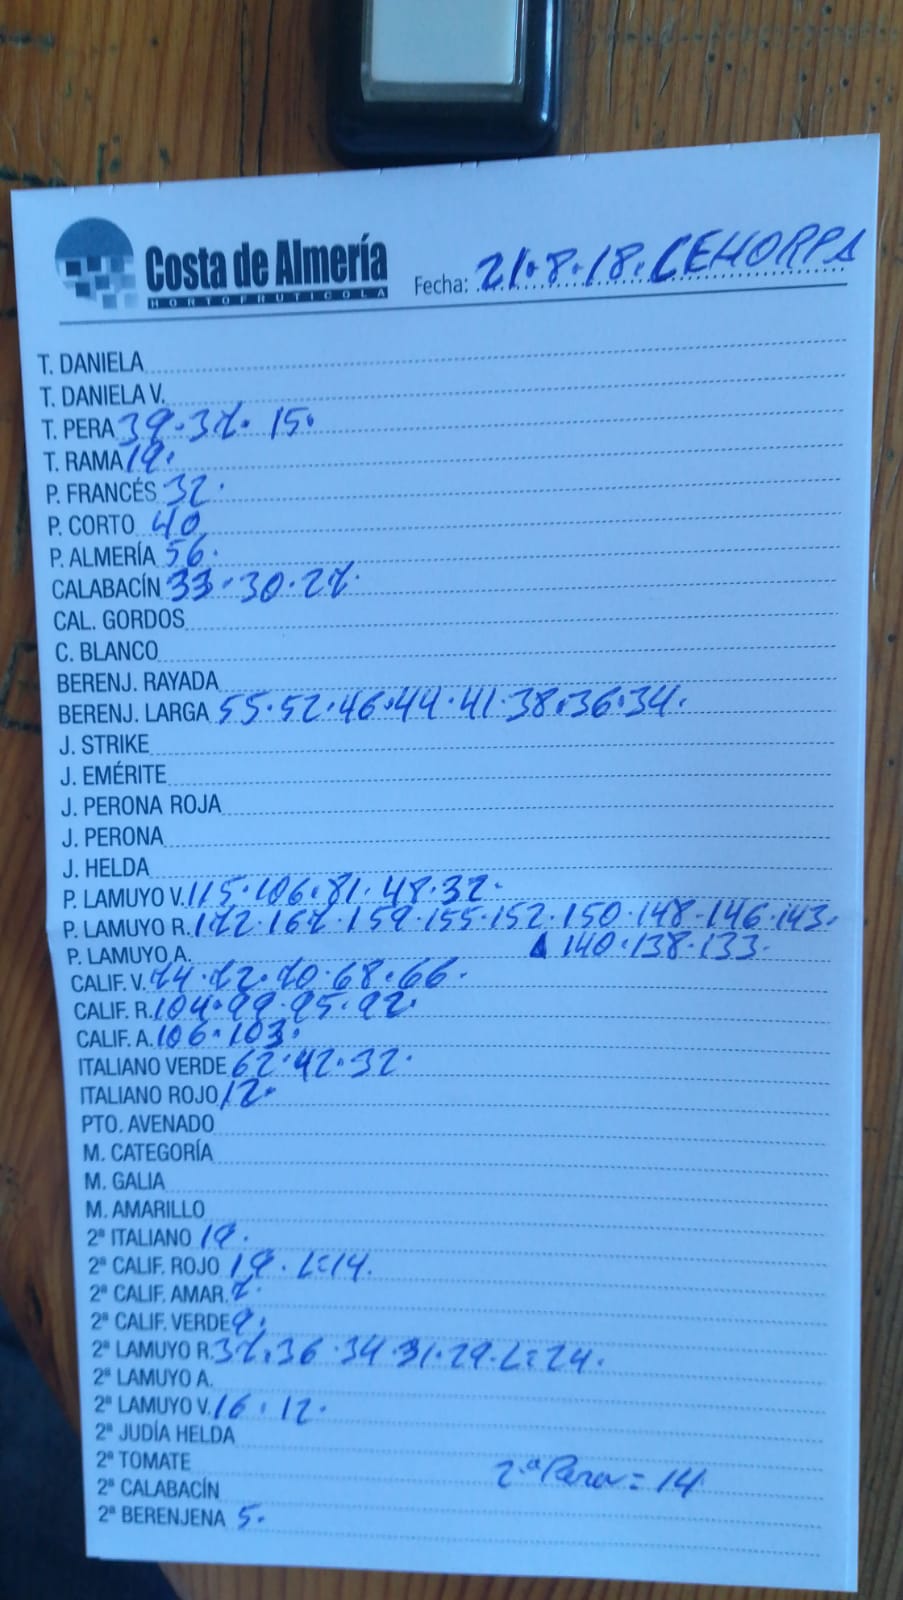 Costa de Almería
HORTOFRUTICOLA
Fecha: 21.8.18. CEHORPA
T. DANIELA
T. DANIELA V.
T. PERA 39.37. 15.
T. RAMA 19.
P. FRANCÉS 32.
P. CORTO 40
P. ALMERÍA 56.
CALABACÍN 33.30.27.
CAL. GORDOS
C. BLANCO
BERENJ. RAYADA
BERENJ. LARGA 55.52.46.44.41.38.36.34.
J. STRIKE
J. EMÉRITE
J. PERONA ROJA
J. PERONA
J. HELDA
P. LAMUYO V. 115.106.81.48.32.
P. LAMUYO R. 172.167.159.155.152.150.148.146.143.
P. LAMUYO A. 140.138.133.
CALIF. V. 74.72.70.68.66.
CALIF. R. 104.99.95.92.
CALIF. A. 106.103.
ITALIANO VERDE 62.42.32.
ITALIANO ROJO 12.
PTO. AVENADO
M. CATEGORÍA
M. GALIA
M. AMARILLO
2ª ITALIANO 19.
2ª CALIF. ROJO 19. L=14.
2ª CALIF. AMAR. 7.
2ª CALIF. VERDE 9.
2ª LAMUYO R. 37.36.34.31.29. L=24.
2ª LAMUYO A.
2ª LAMUYO V. 16.12.
2ª JUDÍA HELDA
2ª TOMATE 2.ª Pera = 14
2ª CALABACÍN
2ª BERENJENA 5.